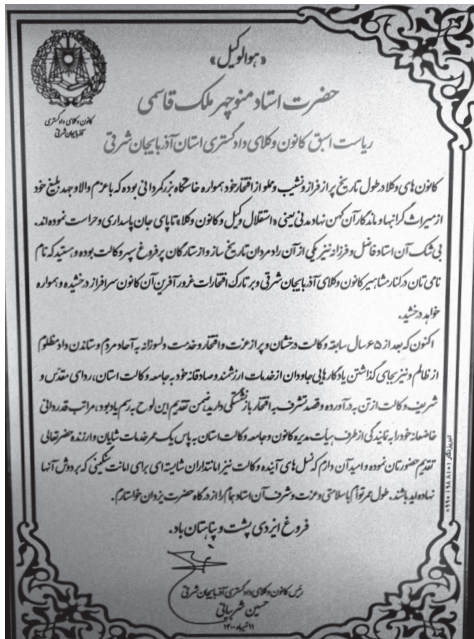 «هوالوکیل»
کانون وکلای دادگستری
آذربایجان شرقی
حضرت استاد منوچهر ملک قاسمی
ریاست اسبق کانون وکلای دادگستری استان آذربایجان شرقی
کانون های وکلا در طول تاریخ پر از فراز و نشیب و مملو از افتخار خود همواره خاستگاه بزرگمردانی بوده که با عزم والا و جهد بلیغ خود
از میراث گرانبها و ماندگار آن کهن نهاد مدنی یعنی «استقلال وکیل و کانون وکلا» تا پای جان پاسداری و حراست نموده اند.
بی شک آن استاد فاضل و فرزانه نیز یکی از آن رادمردان تاریخ ساز و از ستارگان پر فروغ سپهر وکالت بوده و هستید که نام
نامی تان در کنار مشاهیر کانون وکلای آذربایجان شرقی و بر تارک افتخارات غرور آفرین آن کانون سرافراز درخشیده و همواره
خواهد درخشید.
اکنون که بعد از ۶۵ سال سابقه وکالت درخشان و پر از عزت و افتخار و خدمت دلسوزانه به آحاد مردم و ستاندن داد مظلوم
از ظالم و نیز بجای گذاشتن یادگارهایی جاودان از خدمات ارزشمند و صادقانه خود به جامعه وکالت استان، ردای مقدس و
شریف وکالت از تن به در آورده و قصد تشرف به افتخار بازنشستگی دارید ضمن تقدیم این لوح به رسم یادبود، مراتب قدردانی
خاضعانه خود را به نمایندگی از طرف هیأت مدیره کانون و جامعه وکالت استان به پاس یک عمر خدمات شایان و ارزنده حضرتعالی
تقدیم حضورتان نموده و امید آن دارم که نسل های آینده وکالت نیز امانتداران شایسته ای برای امانت سنگینی که بر دوش آنها
نهاده اید باشند. طول عمر توأم با سلامتی و عزت و شرف آن استاد همام را از درگاه حضرت یزدان خواستارم.
فروغ ایزدی پشت و پناهتان باد.
رئیس کانون وکلای دادگستری آذربایجان شرقی
حسین شهبانی
۱۱ مهرماه ۱۴۰۰